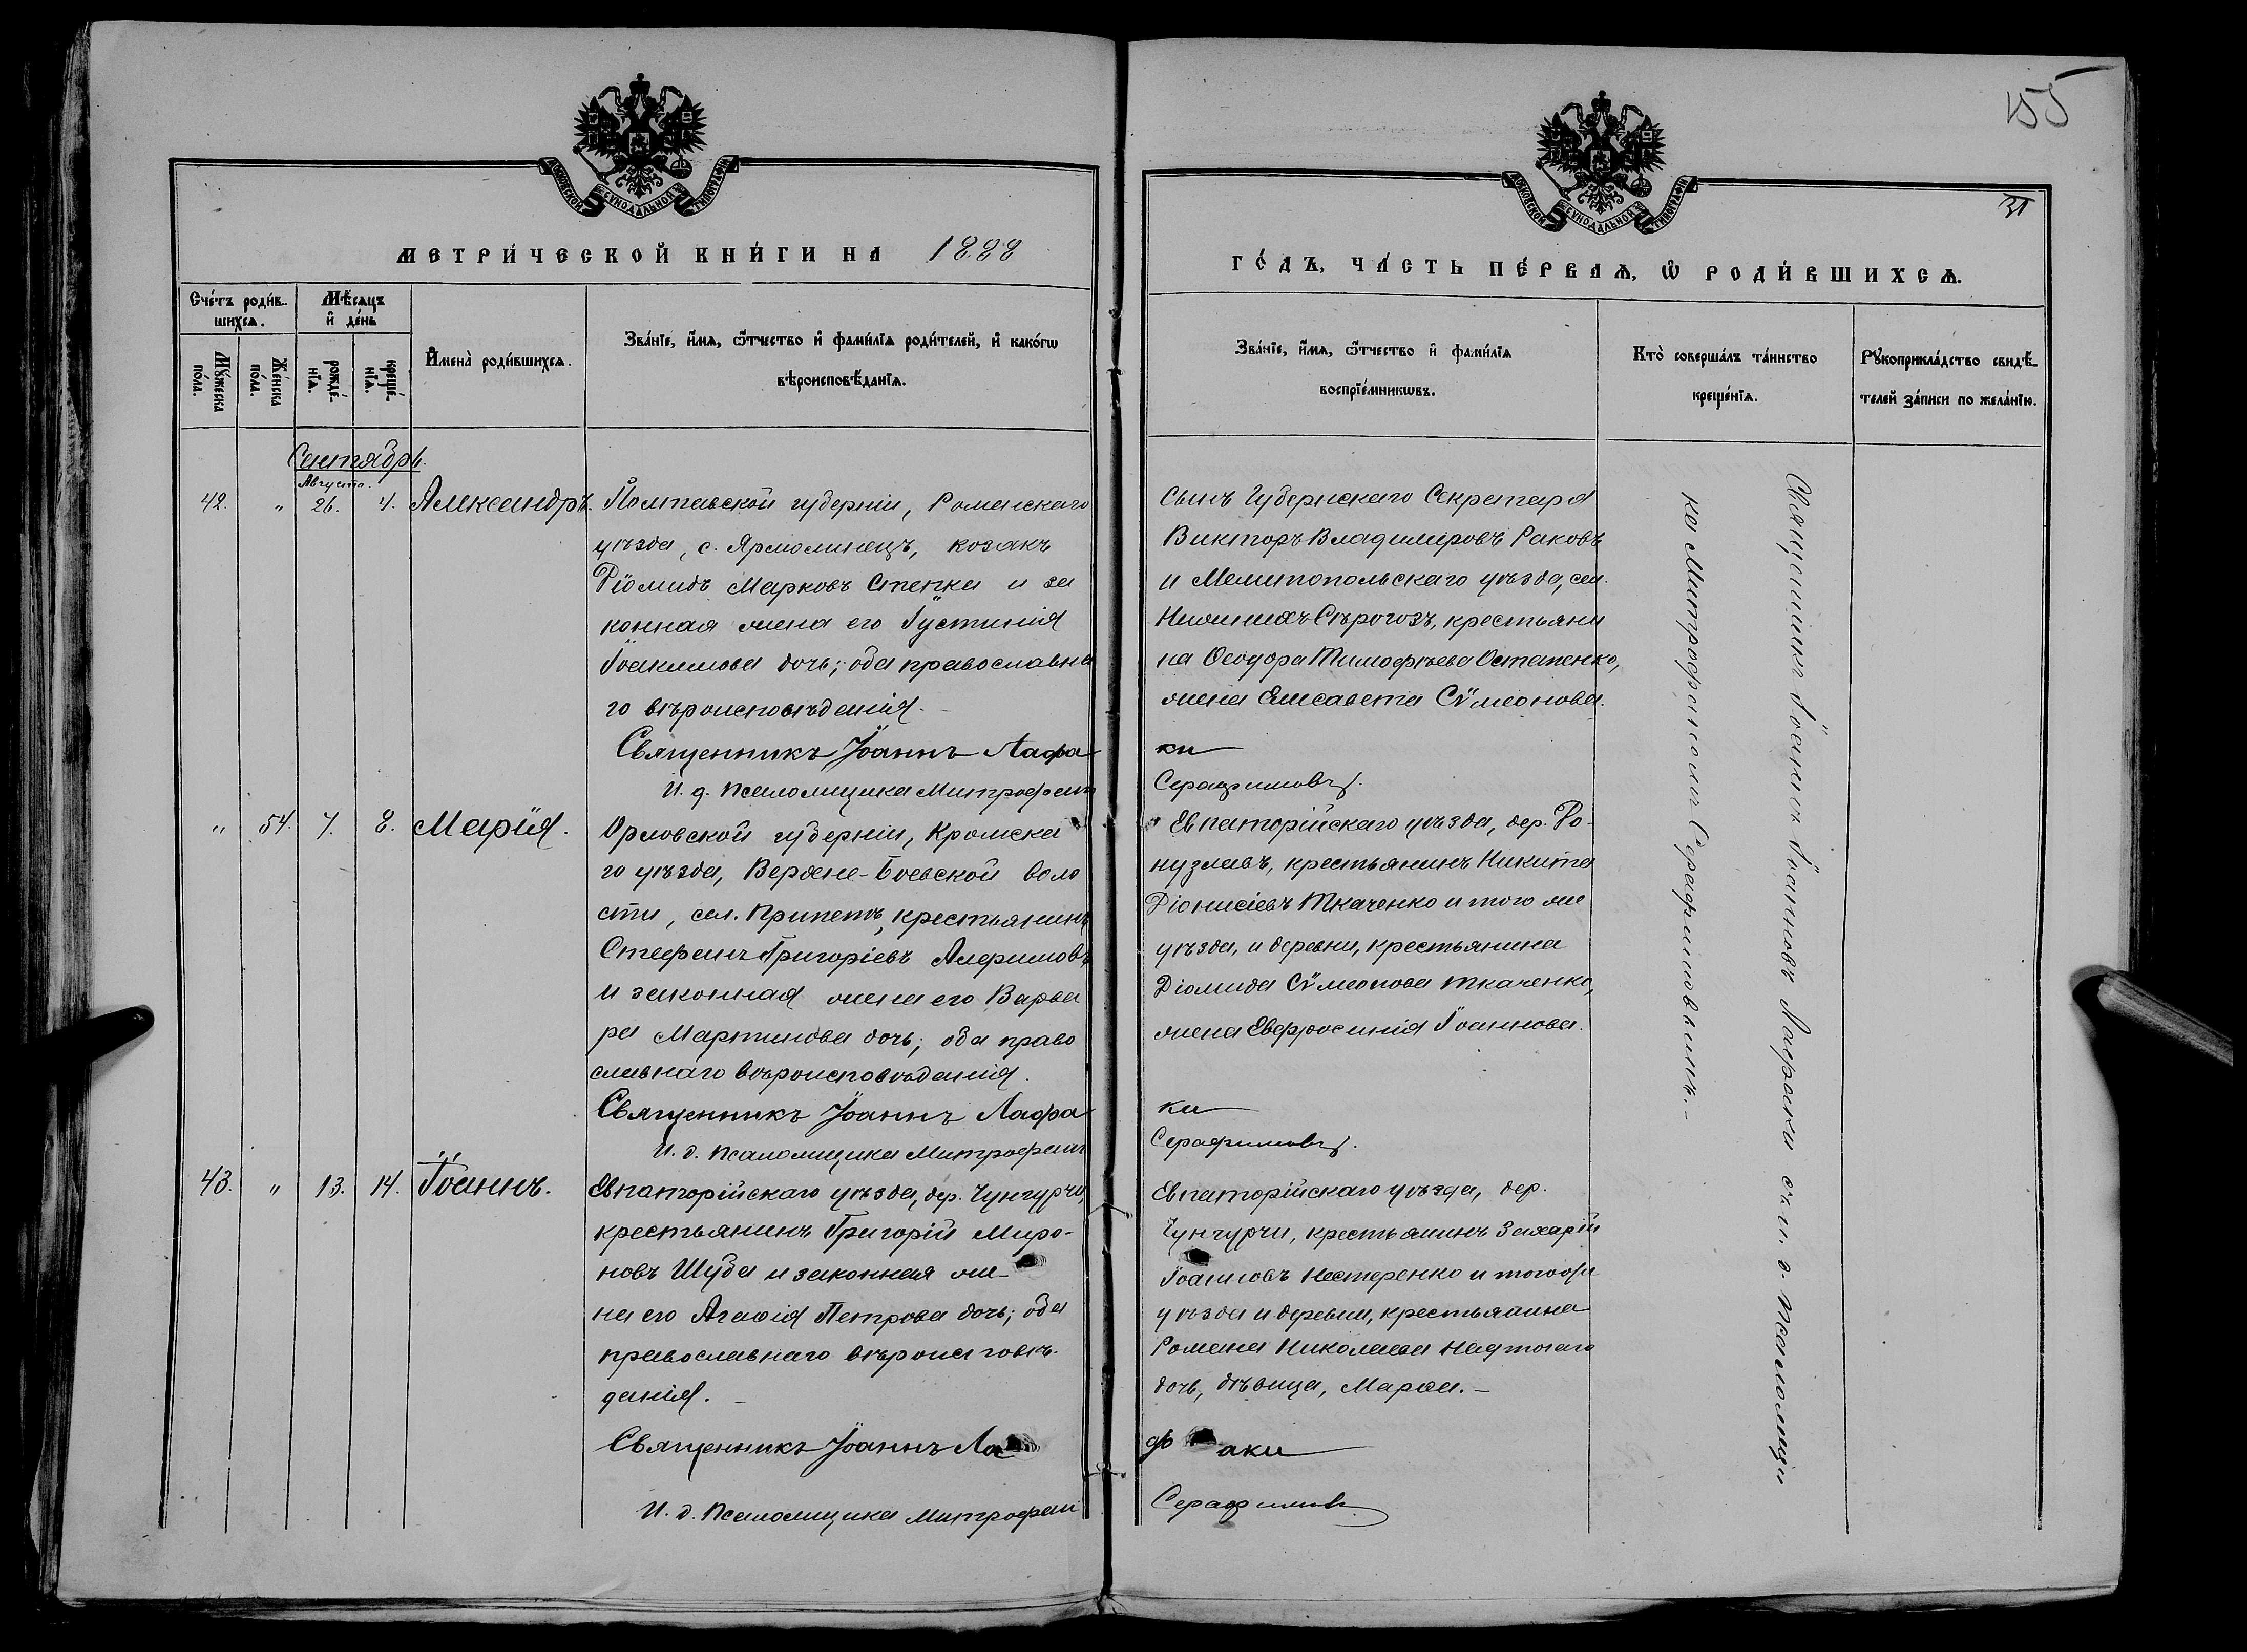 155
31
МОСКОВСКОЙ СѴНОДАЛЬНОЙ ТИПОГРАФІИ
МОСКОВСКОЙ СѴНОДАЛЬНОЙ ТИПОГРАФІИ
МЕТРИ́ЧЕСКОЙ КНИ́ГИ НА 1888
ГО́ДЪ, ЧА́СТЬ ПЕ́РВАѦ, Ѡ РОДИ́ВШИХСѦ.
Сче́тъ роди́в-
шихсѧ.
Мꙋ́жеска
по́ла.
Же́нска
по́ла.
Мѣ́сѧцъ
и҆ де́нь
рожде́-
нїѧ.
креще́-
нїѧ.
И҆мена̀ роди́вшихсѧ.
Зва́нїе, и҆́мѧ, ѻ҆́тчество и҆ фами́лїѧ роди́телей, и҆ како́гѡ
вѣроисповѣ́данїѧ.
Зва́нїе, и҆́мѧ, ѻ҆́тчество и҆ фами́лїѧ
воспрїе́мникѡвъ.
Кто̀ соверша́лъ та́инство
креще́нїѧ.
Рꙋкоприкла́дство свидѣ́-
телей за́писи по жела́нїю.
Сентябрь.
Августа.
42. " 26. 4. Александръ.
Полтавской губерніи, Роменскаго
уѣзда, с. Ярмолинецъ, козакъ
Діомидъ Марковъ Степка и за
конная жена его Іустинія
Іоакимова дочь; оба православна
го вѣроисповѣданія.
Священникъ Іоаннъ Лафа
И. д. псаломщика Митрофанъ
Сынъ Губернскаго Секретаря
Викторъ Владиміровъ Раковъ
и Мелитопольскаго уѣзда, сел.
Нижнихъ Сѣрогозъ, крестьяни
на Ѳеодора Тимофѣева Остапенко,
жена Елисавета Сѵмеонова.
ки
Серафимовъ.
" 54. 7. 8. Марія.
Орловской губерніи, Кромска
го уѣзда, Верхне-Боевской воло
сти, сел. Припетъ, крестьянинъ
Стефанъ Григоріевъ Алфимовъ
и законная жена его Варва
ра Мартинова дочь; оба право
славнаго вѣроисповѣданія.
Священникъ Іоаннъ Лафа
И. д. псаломщика Митрофанъ
Евпаторійскаго уѣзда, дер. До-
нузлавъ, крестьянинъ Никита
Діонисіевъ Ткаченко и того же
уѣзда, и деревни, крестьянина
Діомида Сѵмеонова Ткаченко,
жена Евфросинія Іоаннова.
ки
Серафимовъ.
43. " 13. 14. Іоаннъ.
Евпаторійскаго уѣзда, дер. Чунгурчи,
крестьянинъ Григорій Миро-
новъ Шуба и законная же-
на его Агаѳія Петрова дочь; оба
православнаго вѣроисповѣ-
данія.
Священникъ Іоаннъ Ла
И. д. псаломщика Митрофан
Евпаторійскаго уѣзда, дер.
Чунгурчи, крестьянинъ Захарій
Іоанновъ Нестеренко и того же
уѣзда и деревни, крестьянина
Романа Николаева
дочь, дѣвица, Марѳа.
ф аки
Серафимовъ
Священникъ Іоаннъ Іоанновъ Лафаки съ и. д. псаломщи
ка Митрофаномъ Серафимовымъ.